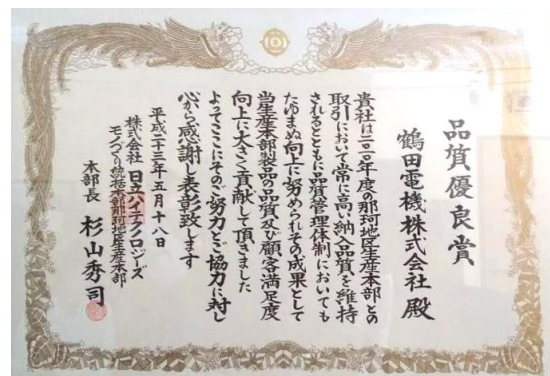 品質優良賞
鶴田電機株式会社 殿
貴社は二〇一〇年度の那珂地区生産本部との
取引において常に高い納入品質を維持
されるとともに品質管理体制においても
たゆまぬ向上に努められその成果として
当生産本部製品の品質及び顧客満足度
向上に大きく貢献して頂きました
よってここにそのご努力とご協力に対し
心から感謝し表彰致します
平成二十三年五月十八日
株式会社 日立ハイテクノロジーズ
モノづくり統括本部那珂地区生産本部
本部長 杉山秀司